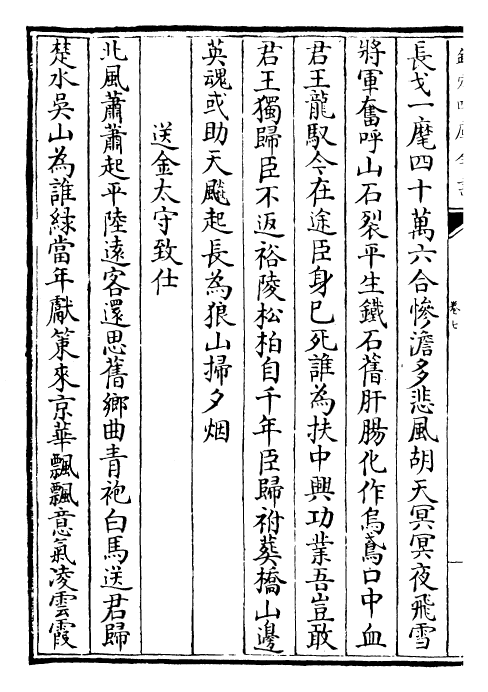 卷七
長戈一麾四十萬六合慘澹多悲風胡天冥冥夜飛雪
將軍奮呼山石裂平生鐵石舊肝腸化作烏鳶口中血
君王龍馭今在途臣身已死誰為扶中興功業吾豈敢
君王獨歸臣不返裕陵松柏自千年臣歸祔葬橋山邊
英魂或助天飈起長為狼山掃夕烟
送金太守致仕
北風蕭蕭起平陸遠客還思舊鄉曲青袍白馬送君歸
楚水吳山為誰緑當年獻策來京華飄飄意氣凌雲霞